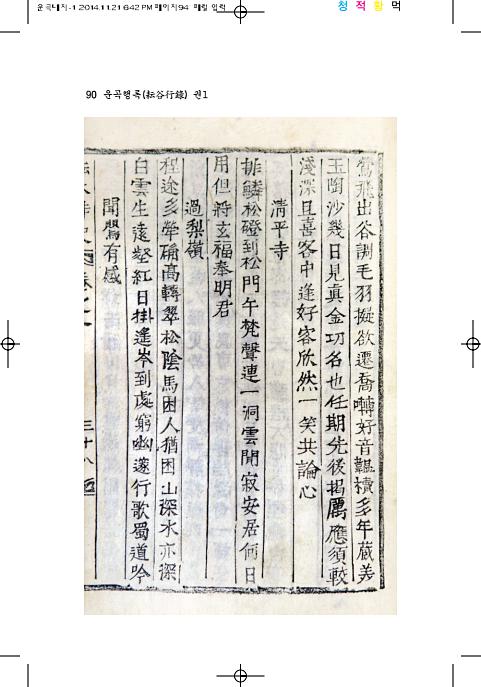 운곡내지-1 2014.11.21 6:42 PM 페이지94 매킬 입력
청 적 황 먹
90 운곡행록(耘谷行錄) 권1
鶯飛出谷調毛羽擬欲遷喬囀好音韞櫝多年藏美
玉陶沙幾日見眞金功名也任期先後揭厲應須較
淺深且喜客中逢好客欣然一笑共論心
淸平寺
排鱗松磴到松門午梵聲連一洞雲閒寂安居何日
用但將玄福奉明君
過梨嶺
程途多犖确高轉翠松陰馬困人猶困山深水亦深
白雲生遠壑紅日掛遙岑到處窮幽邃行歌蜀道吟
聞鶯有感
三十八